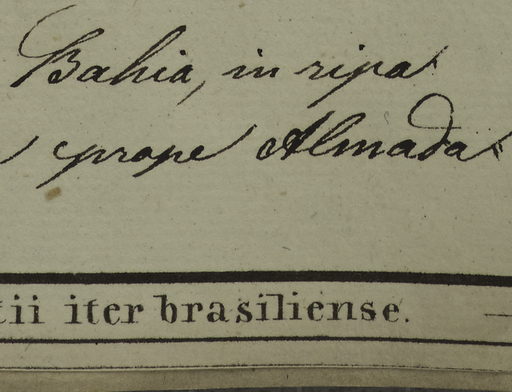 Bahia, in ripa
prope Almada
tii iter brasiliense.